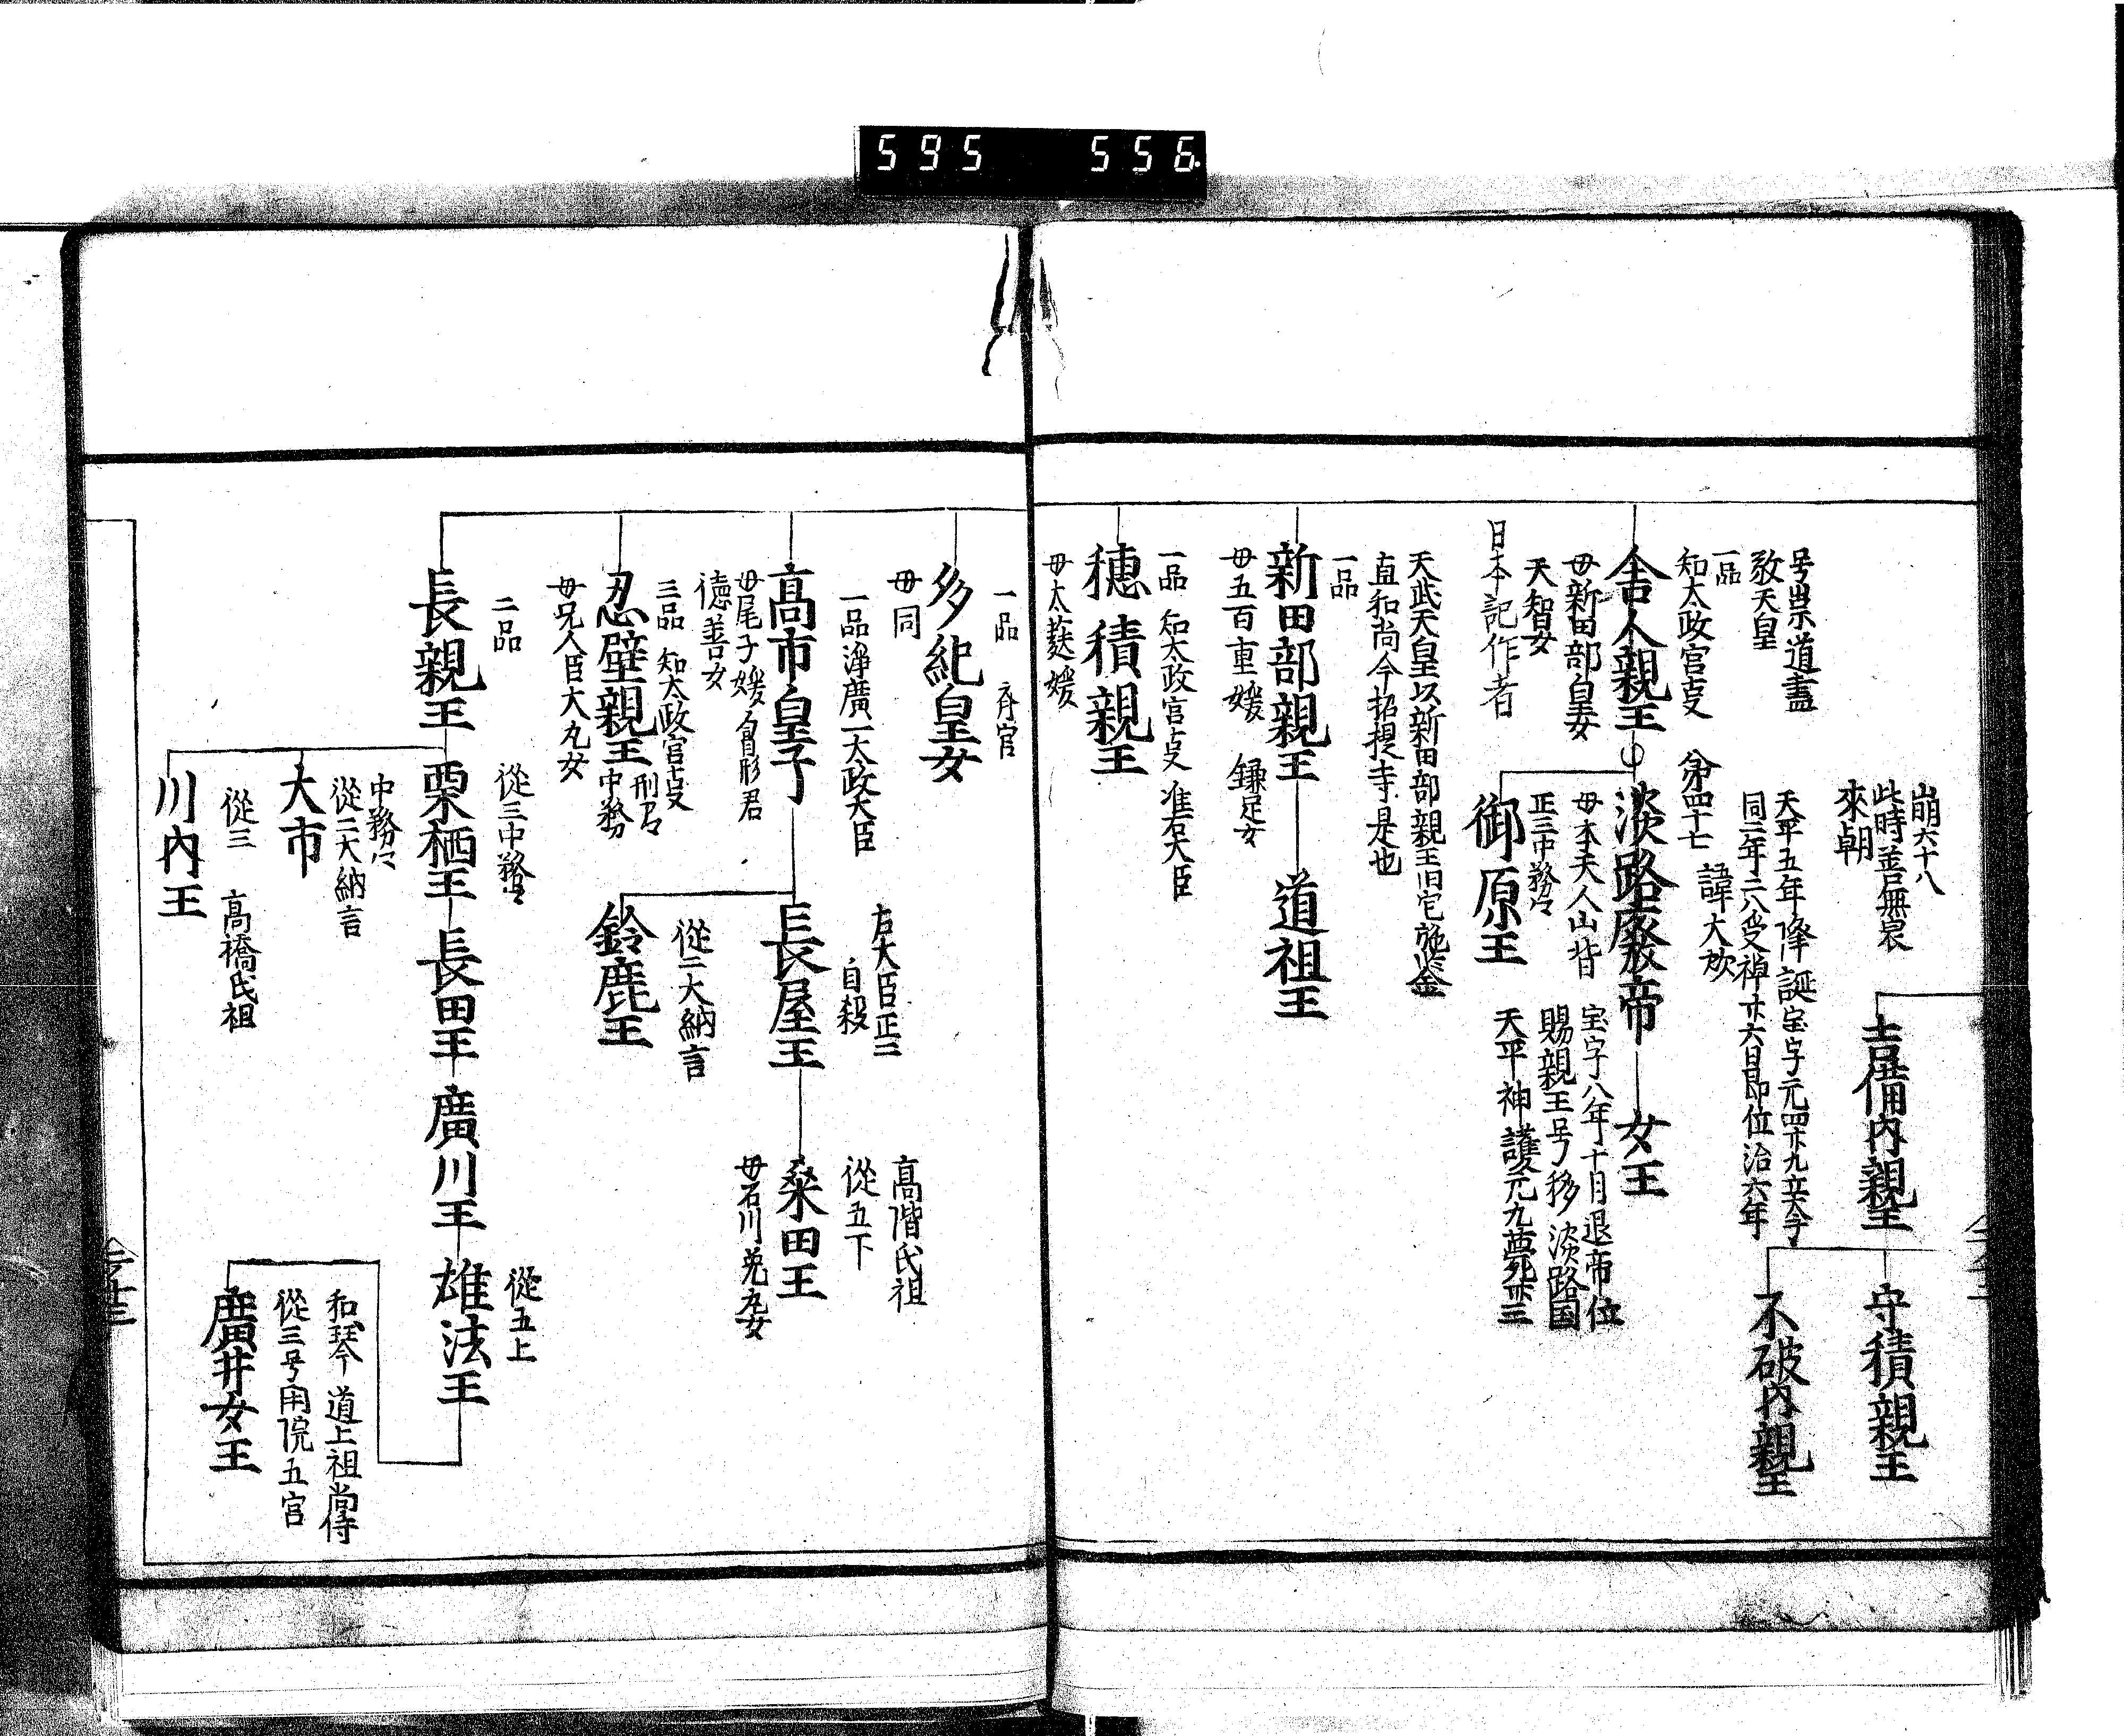 595 556
崩六十八
此時善無畏
來朝
吉備內親王
守積親王
不破內親王
号崇道盡
敬天皇
一品
知太政官事
舍人親王
母新田部皇女
天智女
日本記作者
天平五年降誕宝字元四廿九立太子
同二年二八受禅廿六日即位治六年
第四十七
諱大炊
淡路廢帝
母本夫人山背
宝字八年十月退帝位
賜親王号移淡路国
天平神護元九薨死卅三
女王
正三中務々
御原王
天武天皇以新田部親王旧宅施鑒
直和尚今招提寺是也
一品
新田部親王
母五百重媛 鎌足女
道祖王
一品 知太政官事 准右大臣
穗積親王
母太蕤媛
一品 斉官
多紀皇女
母同
一品淨廣一大政大臣
高市皇子
母尾子媛胷形君
德善女
左大臣正二
自殺
長屋王
高階氏祖
從五下
桑田王
母石川菟丸女
從二大納言
鈴鹿王
三品 知太政官事刑了々
忍壁親王
中務
母兄人臣大丸女
二品
長親王
從三中務々
栗栖王
長田王
廣川王
從五上
雄法王
和琴道上祖尚侍
從三号閑院五宮
廣井女王
中務々
從二大納言
大市
從三 高橋氏祖
川內王